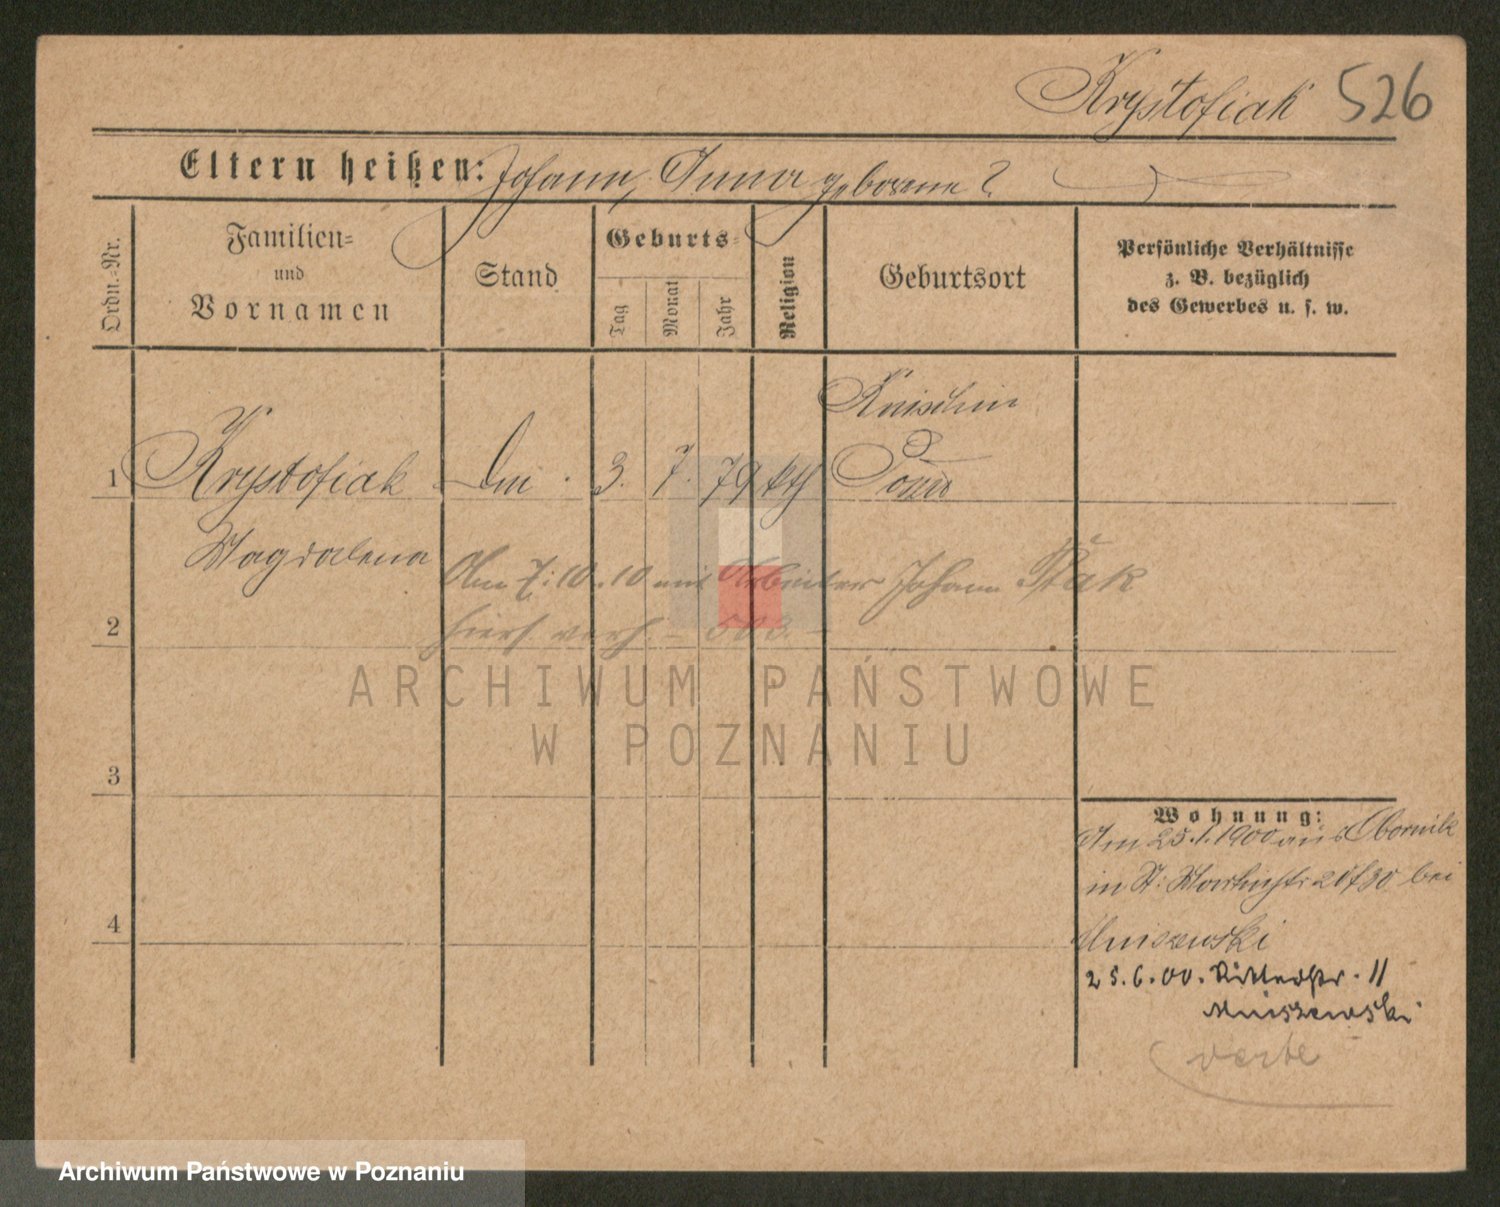 Krystofiak 526
Eltern heißen: Johann, Anna geborene ?
Ordn.-Nr.
Familien- und Vornamen
Stand
Geburts-
Tag
Monat
Jahr
Religion
Geburtsort
Persönliche Verhältnisse
z. B. bezüglich
des Gewerbes u. s. w.
1 Krystofiak 3. 7. 79 kth
Magdalena
Am 7.10.10 mit Arbeiter Johann Ptak
hiers. verh. – 503. –
2
3
4
Wohnung:
Am 25.1.1900 aus Obornik
in St. Martinstr. 29/30 bei
Mniszewski
25.6.00. Ritterstr. 11
Mniszewski
ARCHIWUM PAŃSTWOWE
W POZNANIU
Archiwum Państwowe w Poznaniu